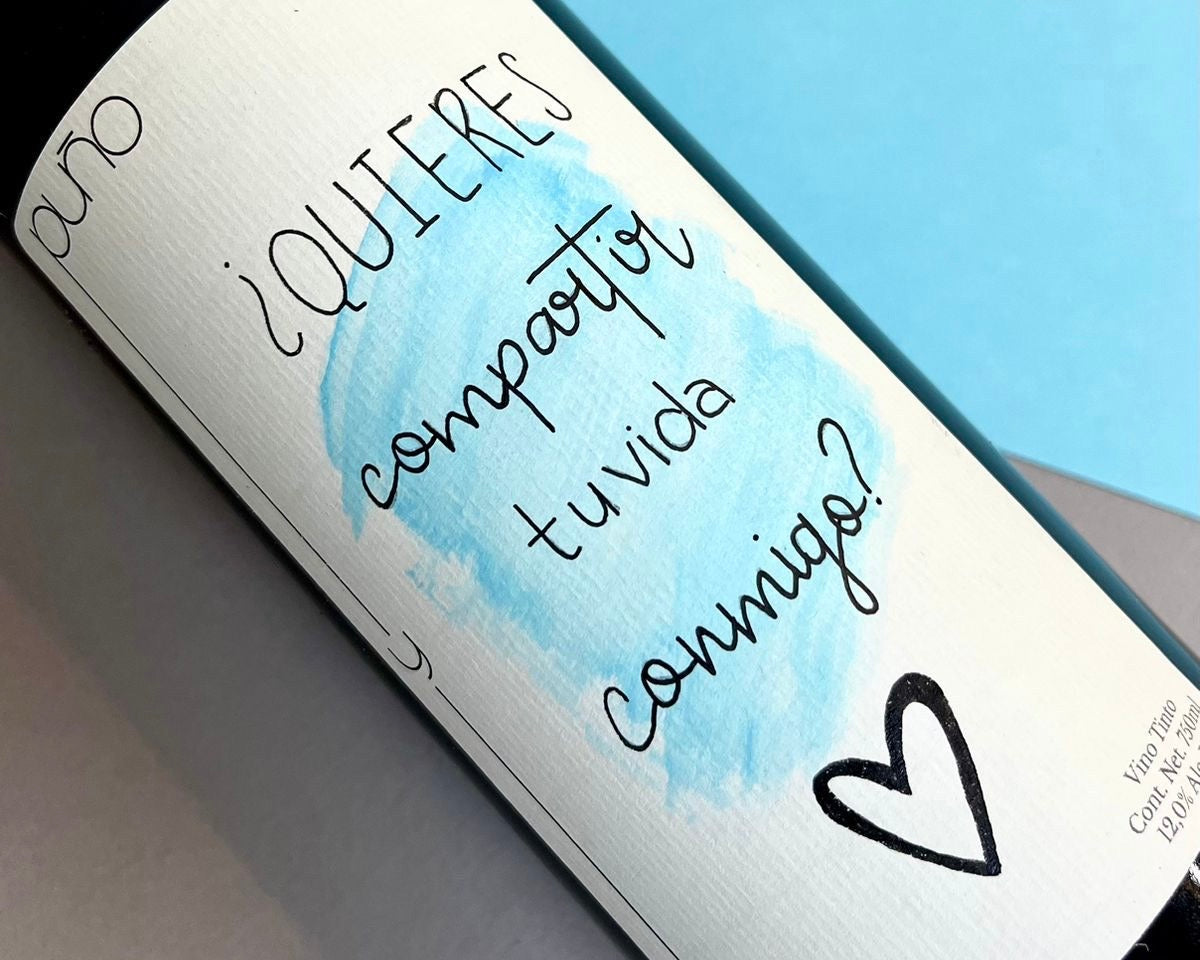 puño
y
¿QUIERES
compartir
tu vida
conmigo?
Vino Tinto
Cont. Net. 750ml
12,0% Alc